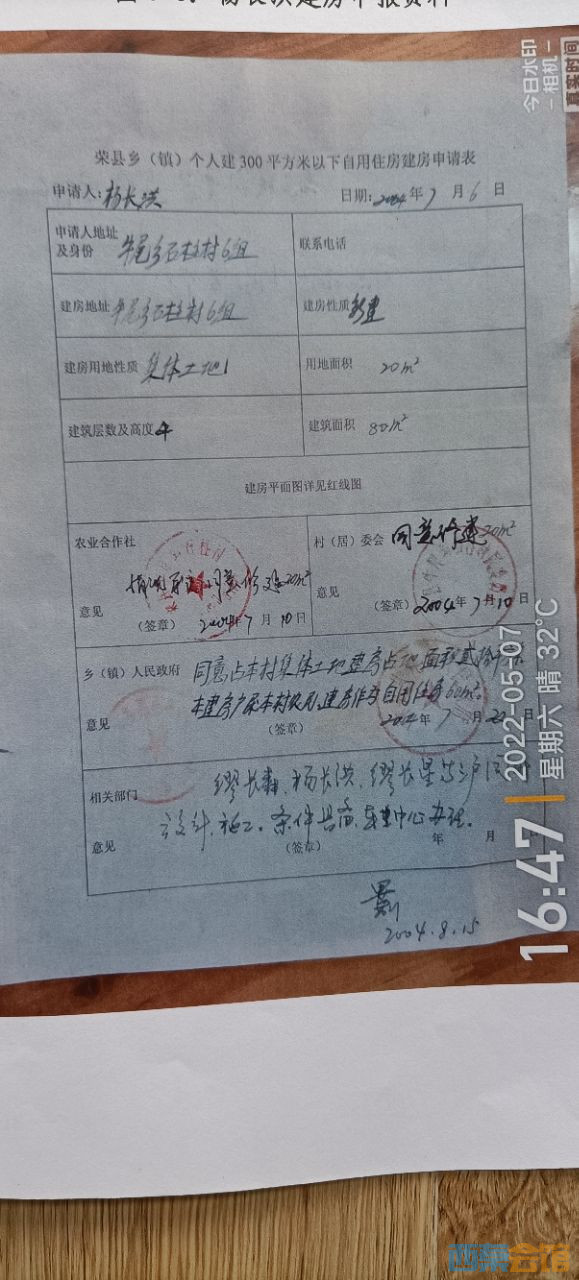 杨长洪建房申报资料
荣县乡（镇）个人建300平方米以下自用住房建房申请表
申请人：杨长洪 日期：2004年7月6日
申请人地址及身份 牛尾乡石柱村6组 联系电话
建房地址 牛尾乡石柱村6组 建房性质 新建
建房用地性质 集体土地 用地面积 20m²
建筑层数及高度 4 建筑面积 80m²
建房平面图详见红线图
农业合作社 村（居）委会 同意修建20m²
情况属实同意修建20m²
意见 意见
（签章）2004年7月10日 （签章）2004年7月10日
乡（镇）人民政府 同意占本村集体土地建房占地面积贰拾
本建房户系本村农户，建房作为自用住房60m²。
意见 （签章） 2004年7月22日
相关部门 缪长森、杨长洪、缪长星等三户
设计、施工。条件具备，中心办理。
意见 （签章） 年 月
2004.8.15
今日水印
相机
真实时间
16:47
2022-05-07
星期六 晴 32℃
西荣会馆